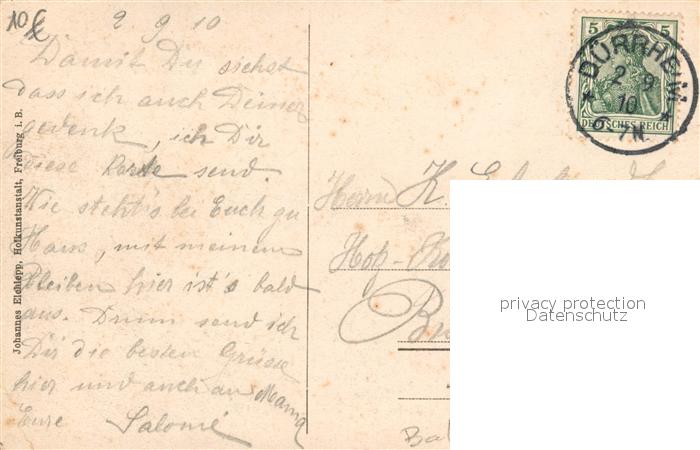 2 9 10
Damit Du siehst
dass ich auch Deiner
gedenk, ich Dir
diese Karte send.
Wie steht's bei Euch zu
Haus, mit meinem
Bleiben hier ist's bald
aus. Drum send ich
Dir die besten Grüsse
hier und auch an Mama
Eure Salomé
Johannes Elchlepp, Hofkunstanstalt, Freiburg i. B.
5 5
DÜRRHEIM
2 9
10
6-7N.
DEUTSCHES REICH
Herrn K.
Hof-
privacy protection
Datenschutz